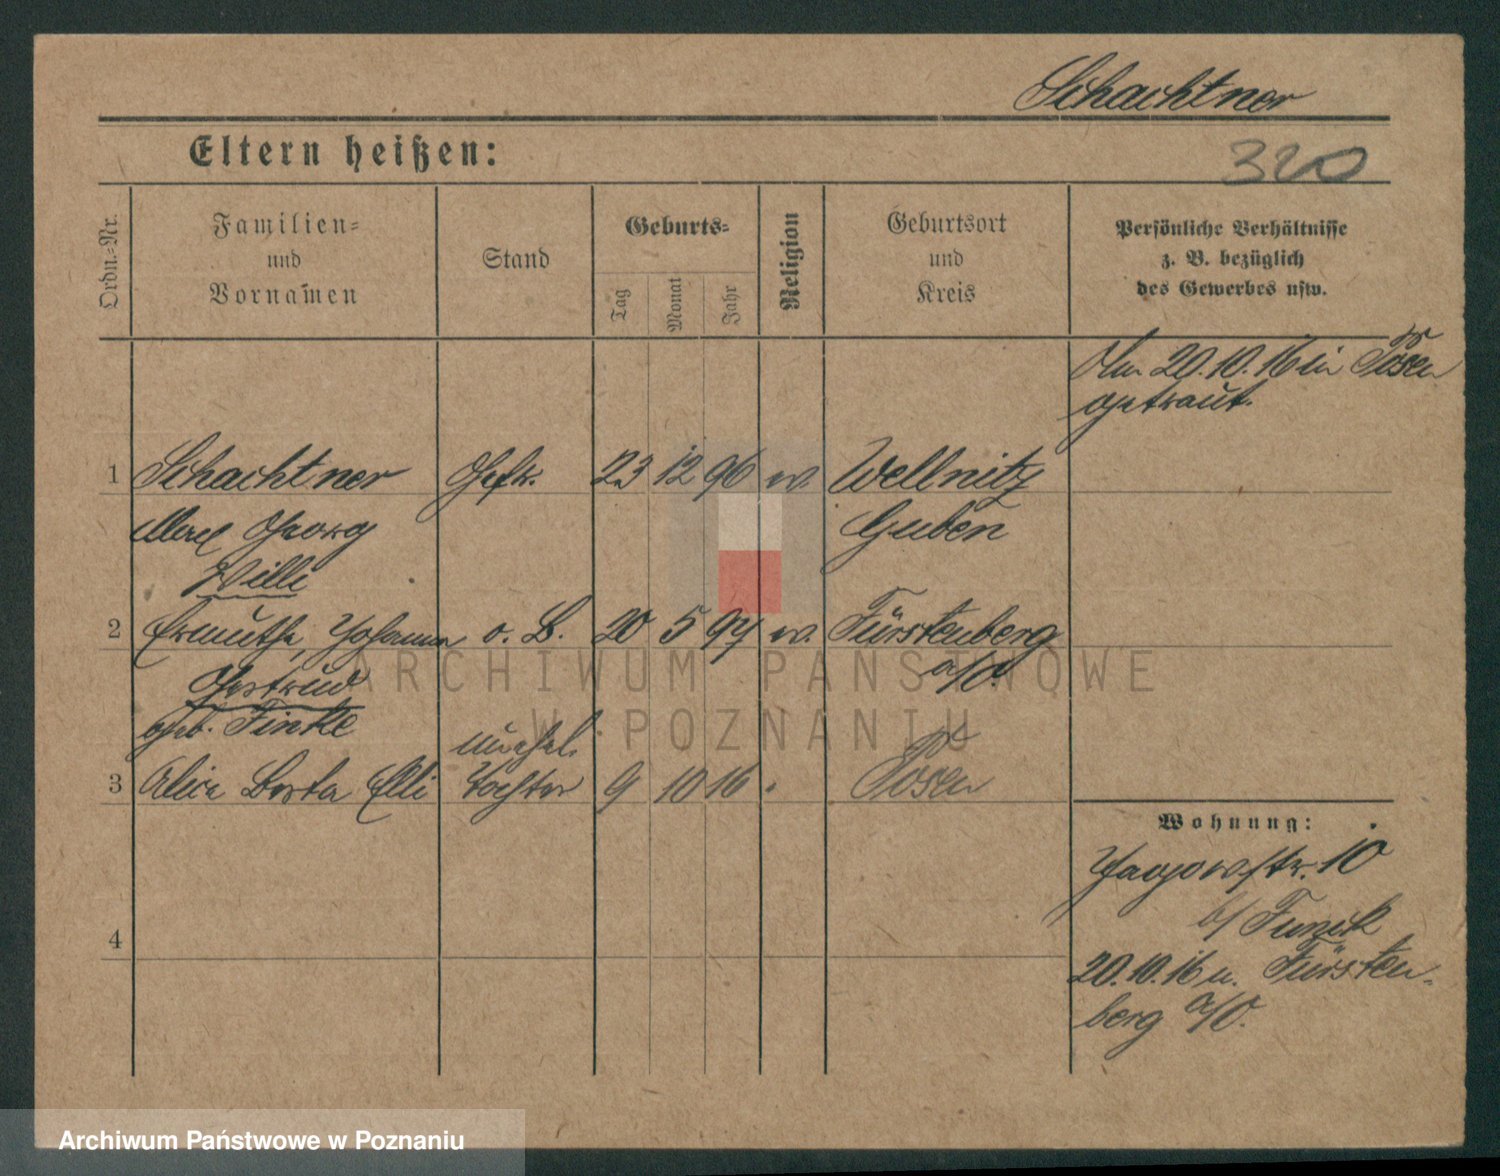 Schachtner
Eltern heißen:
320
Ordn.=Nr.
Familien=
und
Vornamen
Stand
Geburts=
Tag
Monat
Jahr
Religion
Geburtsort
und
Kreis
Persönliche Verhältnisse
z. B. bezüglich
des Gewerbes usw.
Am 20.10.16 in Posen
getraut.
1 Schachtner Gefr. 23 12 96 ev. Wellnitz
Max Georg Guben
Willi
2 Ermuthe, Johanna o. B. 20 5 94 ev. Fürstenberg
Gertrud a/O.
geb. Finke
unehel.
3 Alice Berta Elli Tochter 9 10 16 Posen
Wohnung:
Jagowstr. 10
b/ Funck
4
20.10.16 n. Fürsten-
berg a/O.
ARCHIWUM PAŃSTWOWE
W POZNANIU
Archiwum Państwowe w Poznaniu